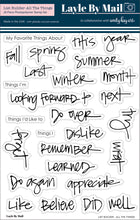 List Builder All The Things
Layle By Mail
this year
My Favorite Things About
Fall spring
Summer
Last winter month
Things I'm
Looking Forward to next
Things I Like to
Do over
Things I Dislike
remember
want
Learned
Do again appreciate
Like Believe Did well
Layle By Mail